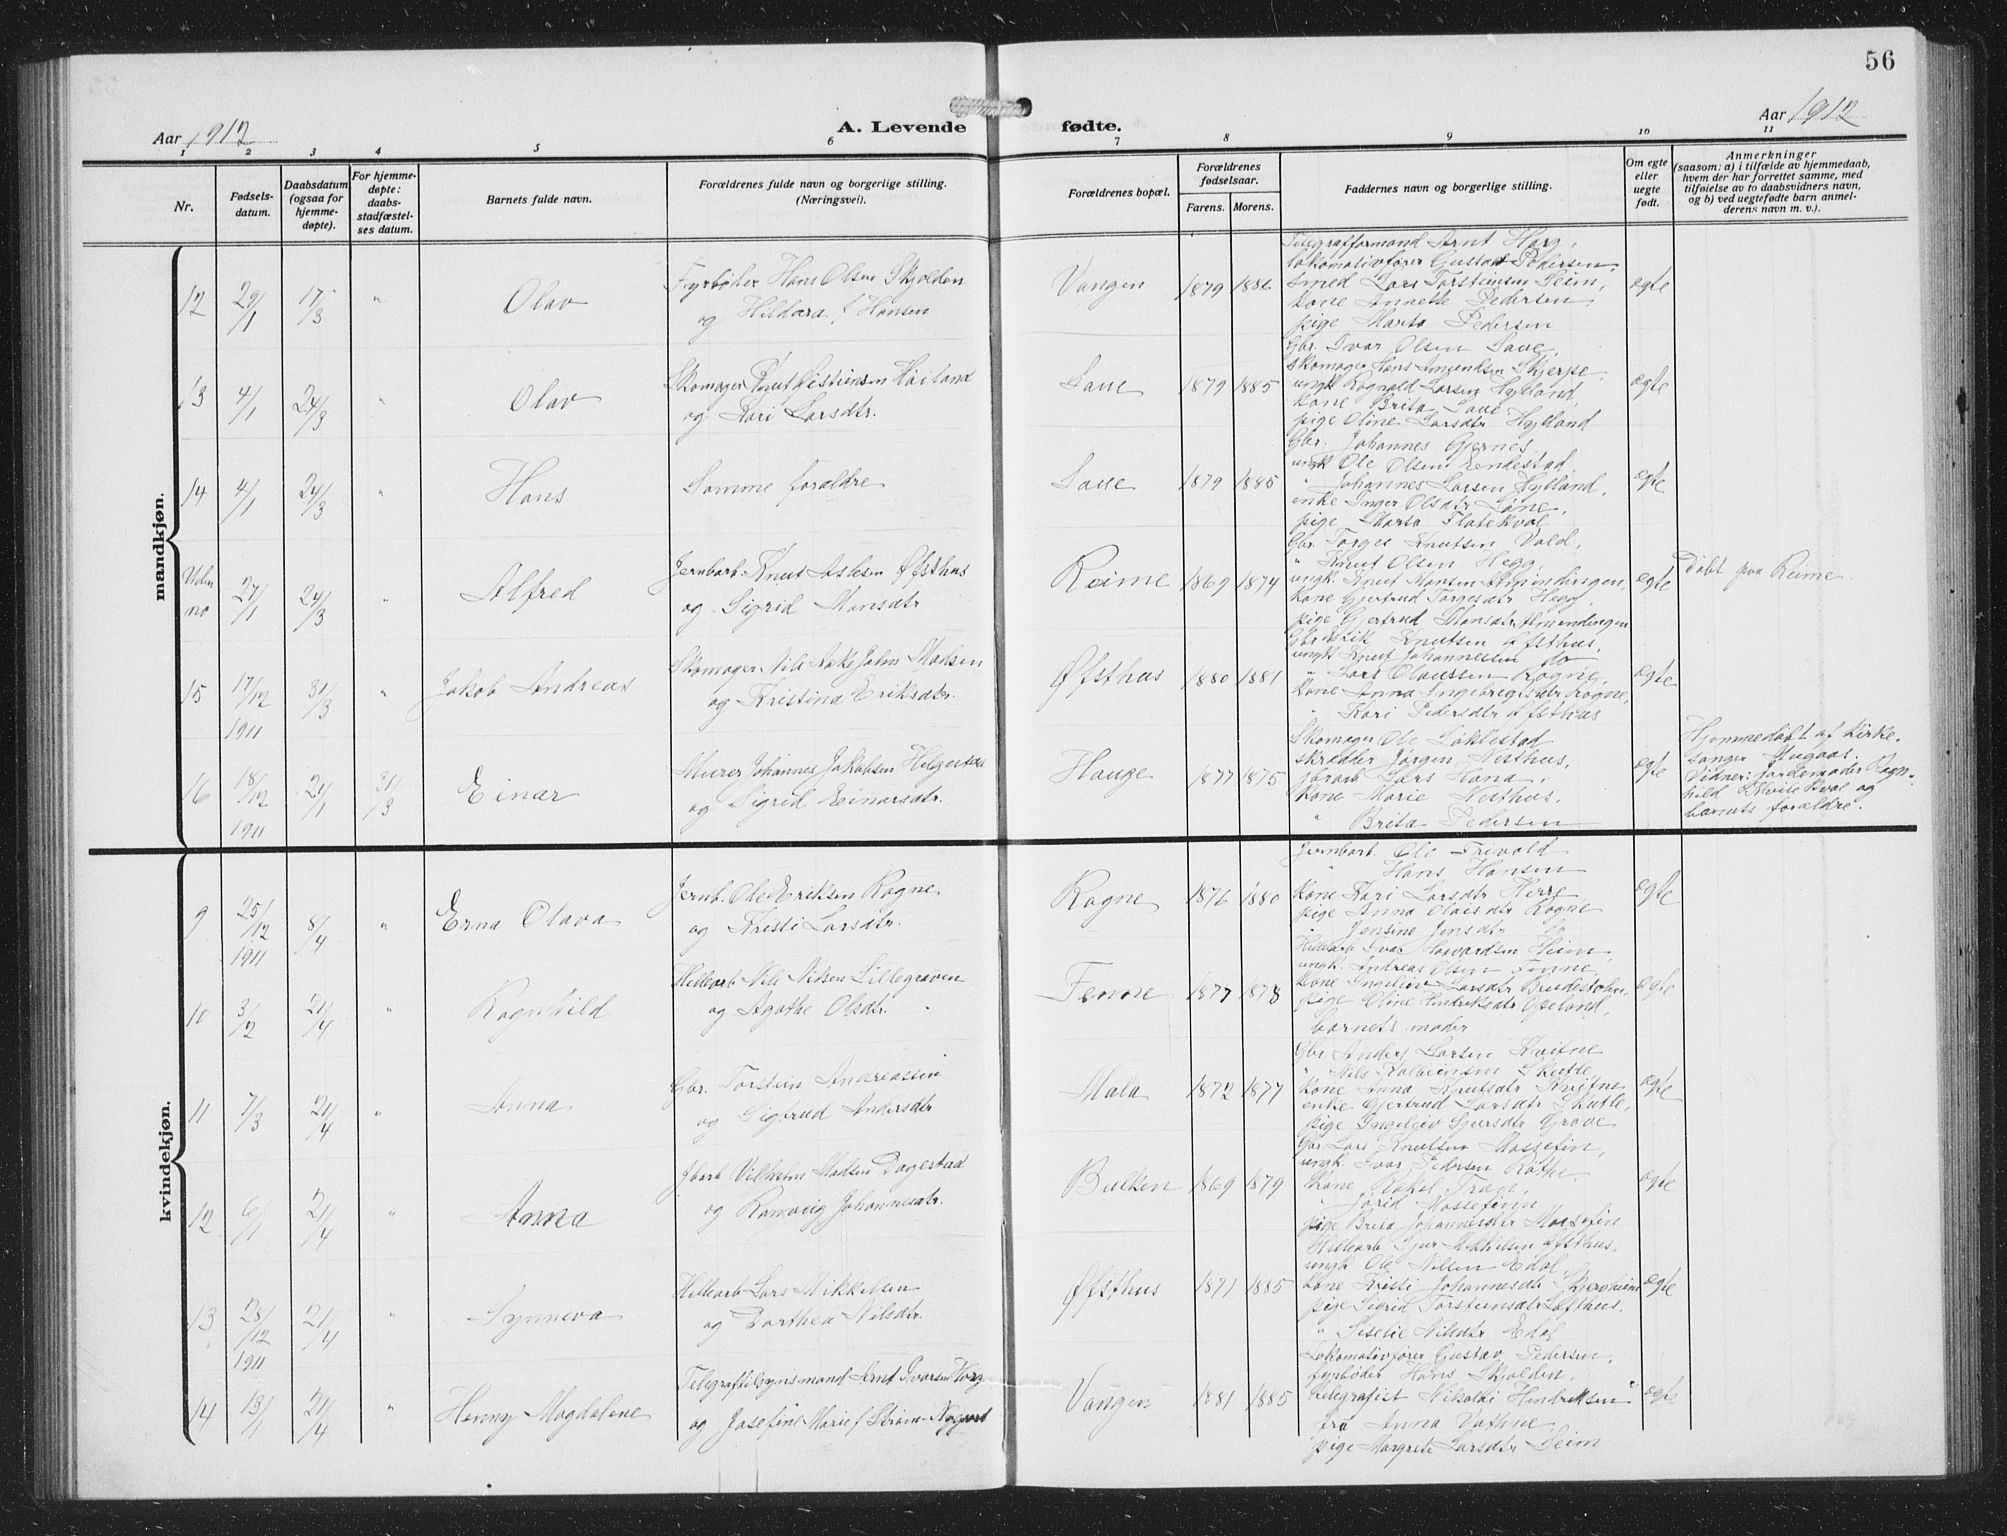 56
Aar 1912
A. Levende
fødte.
Aar 1912
1 2 3 4 5 6 7 8 9 10 11
Nr.
Fødsels-
datum.
Daabsdatum
(ogsaa for
hjemme-
døpte).
For hjemme-
døpte:
daabs-
stadfæstel-
ses datum.
Barnets fulde navn.
Forældrenes fulde navn og borgerlige stilling.
(Næringsvei).
Forældrenes bopæl.
Forældrenes
fødselsaar.
Farens. Morens.
Faddernes navn og borgerlige stilling.
Om egte
eller
uegte
født.
Anmerkninger
(saasom: a) i tilfælde av hjemmedaab,
hvem der har forrettet samme, med
tilføielse av to daabsvidners navn,
og b) ved uegtefødte barn anmel-
derens navn m. v.).
mandkjøn.
12 29/1 17/3 " Olav
Fyrbøter Hans Olsen Skjolden
og Hildara f Hansen
Vangen 1879 1886
Telegrafformand Arnt Horg,
Lokomotivfører Gustav Pedersen,
Smed Lars Torsteinsen Seim,
kone Annette Pedersen
pige Marta Pedersen
egte
13 4/1 24/3 " Olav
Skomager Knut Høiland
og Kari Larsdtr.
Saue 1879 1885
Gbr. Ivar Olsen Saue,
Skomager Hans Amundsen Skjerpe,
ungk Rognald Larsen Hylland,
kone Brita Saue
pige Oline Larsdtr Hylland
egte
14 4/1 24/3 " Hans
Samme forældre
Saue 1879 1885
Gbr. Johannes Gjernes
ungk Ole Olsen Rendestad,
" Johannes Larsen Hylland,
enke Inger Olsdtr Løne,
pige Marta Flatekval
egte
no 27/1 24/3 " Alfred
Jernbarb. Knut Aslesen Øfsthus
og Sigrid Monsdtr
Reime 1869 1874
Gbr. Torges Knutsen Vold,
" Knut Olsen Hegg,
ungk. Knut Monsen
kone Gjertrud Torgesdtr Hegg,
pige Gjertrud Monsdtr
egte
Døbt paa Reime
15 17/12 1911 31/3 " Jakob Andreas
Skomager Nils Ake John Madsen
og Kristina Eriksdtr.
Øfsthus 1880 1881
Gbr Knutsen Øfsthus,
ungk Knut Johannessen do
" Lars Olaussen Rogne,
kone Anna Ingebrigtsdtr Rogne,
" Kari Pedersdtr Øfsthus
egte
16 18/12 1911 2/1 31/3 Einar
Murer Johannes Jakobsen Helgestad
og Sigrid Einarsdtr.
Hauge 1877 1875
Skomager Ole Løklestad
skrædder Jørgen Nesthus,
jbrarb Lars Hana,
kone Marie Nesthus,
" Brita Pedersen
egte
Hjemmedøbt af kirke-
sanger
Vidner: jordemoder Ragn-
hild Skvitekval og
barnets forældre.
kvindekjøn.
9 25/12 1911 8/4 " Erna Olava
Jernb. Ole Eriksen Rogne
og Kristi Larsdtr.
Rogne 1876 1880
Jernbarb. Ole Trevold
" Hans Hansen
kone Kari Larsdtr Herre
pige Anna Olaisdtr Rogne
" Jensine Jensdtr do
egte
10 3/12 21/4 " Ragnhild
Hellearb Nils Nilsen Lillegraven
og Agathe Olsdtr.
Fenne 1877 1878
Hellearb Ivar Sjovardsen Heim
ungk. Andreas Olsen Fenne,
kone Ingeleiv Larsdtr
pige Oline Hindriksdtr Opeland,
barnets moder
egte
11 7/3 21/4 " Anna
Gbr. Torstein Andreassen
og Sigtrud Andersdtr
Mala 1872 1877
Gbr. Anders Larsen Kvitne
" Nils Kolbeinsen Skutle,
kone Anna Knutsdtr Kvitne
enke Gjertrud Larsdtr Skutle,
pige Ingeleiv Sjursdtr Grove
egte
12 6/1 21/4 " Anna
Jbarb Vilhelm Madsen Dagestad
og Ranveig Johannesdtr.
Bulken 1869 1879
Gbr. Lars Knutsen Mossefin,
ungk. Ivar Pedersen Røthe,
kone Rakel Tran,
" Jorid Mossefinn
pige Brita Johannesdtr Mossefin
egte
13 28/12 1911 21/4 " Synneva
Hellearb Lars Mikkelsen
og Dorthea Nilsdtr.
Øfsthus 1871 1885
Hellearb Sjur Mikkelsen Øfsthus,
ungk Ole Nilsen Edal
kone Kristi Johannesdtr
pige Sigrid Torsteinsdtr Løfthus,
" Siselie Nilsdtr Edal
egte
14 13/1 21/4 " Hanny Magdalene
Telegraftilsynsmand Arnt Ivarsen Horg
og Josefine Marie f Strøm-Nygaard
Vangen 1881 1885
Lokomotivfører Gustav Pedersen,
fyrbøder Hans Skjolden,
telegrafist Nikolai Hendriksen
fru Anna Vathne
pige Margrete Larsdtr Seim
egte